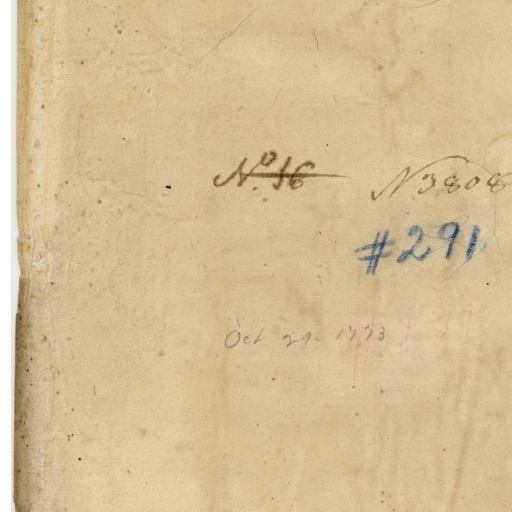 No. 16 N 3808
#291
Oct 29 - 1773